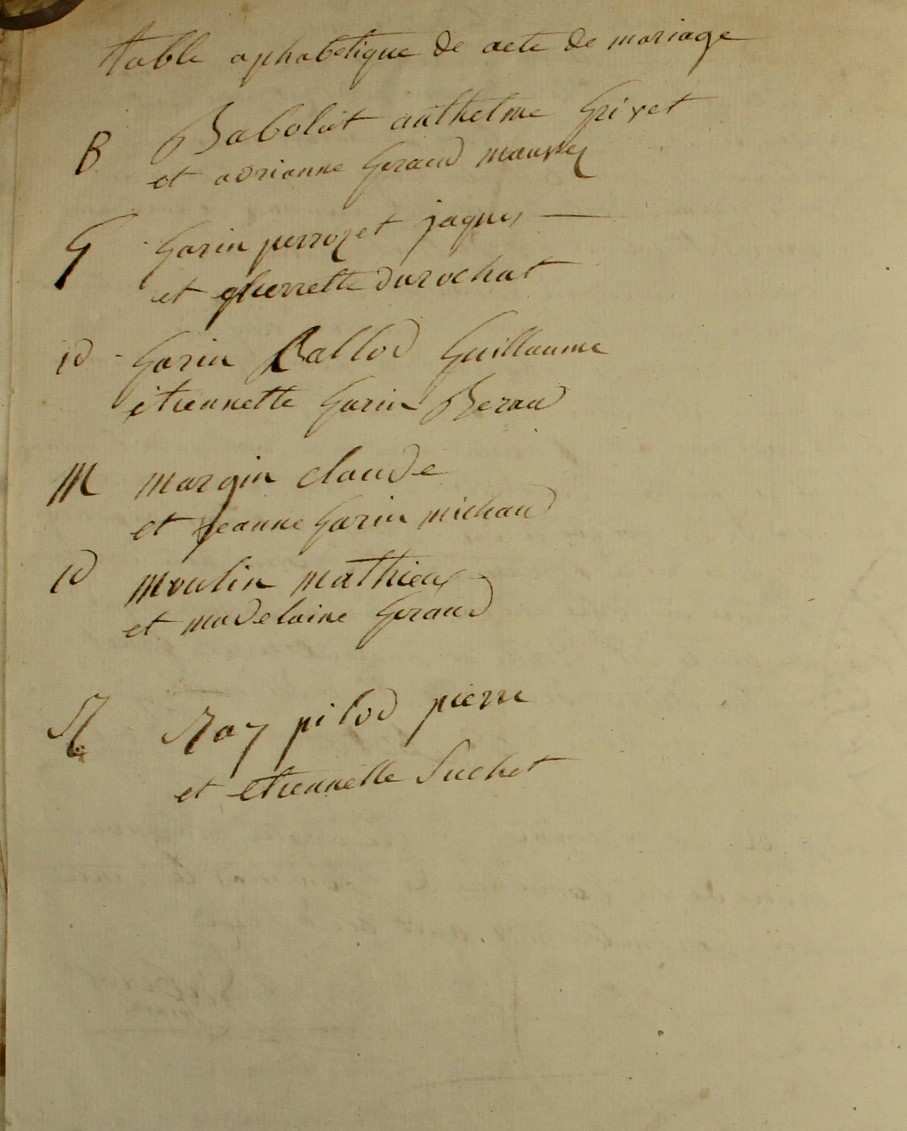 table aphabetique de acte de mariage
B Babolat anthelme Grivet
et adrianne Geraud
G Garin perrozet jaques
et pierrette durochat
id Garin Ballod Guillaume
etiennette Garin Beraud
M margin claude
et jeanne Garin michaud
id moulin mathieu
et madelaine Geraud
R Roy pilod pierre
et etiennette Suchet